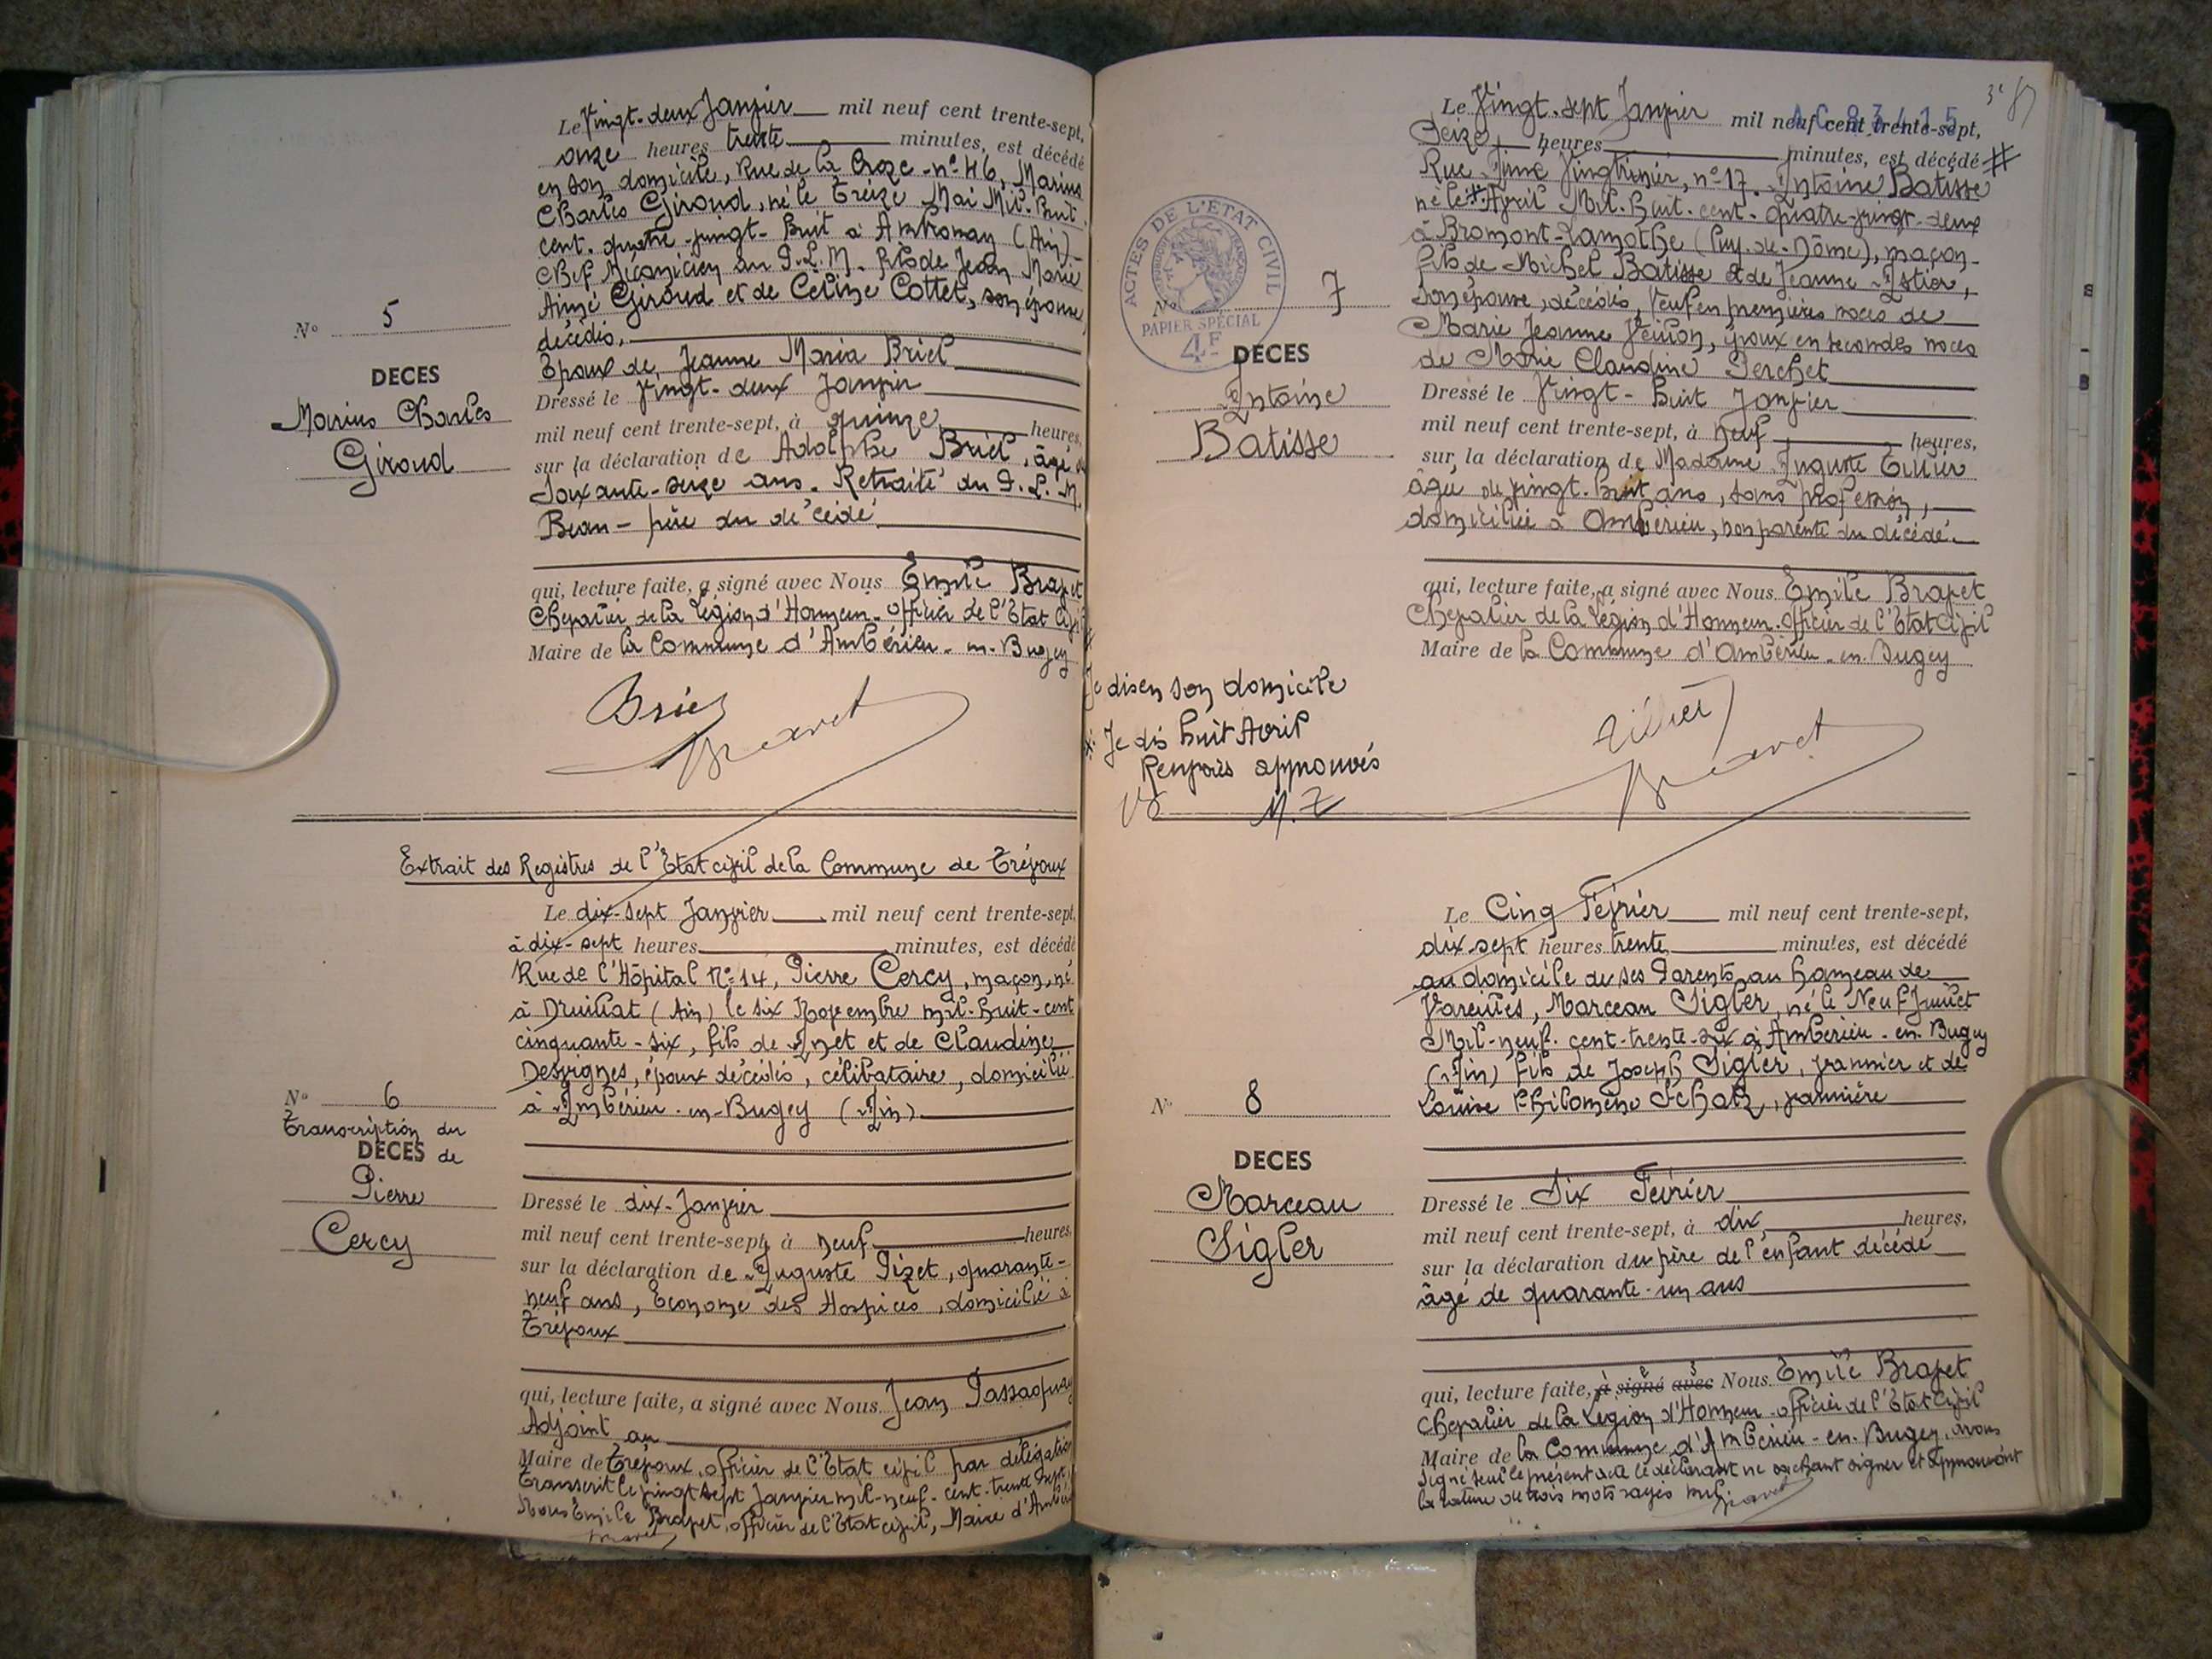 Le Vingt-deux Janvier mil neuf cent trente-sept,
onze heures trente minutes, est décédé
en son domicile, Rue de la Croze - n° 46, Marius
Charles Giroud, né le treize Mai Mil-huit
cent-quatre-vingt-huit à Ambronay (Ain)
Chef Mécanicien au P.L.M. fils de Jean Marie
Aimé Giroud et de Céline Cottet, son épouse
décédés,
Epoux de Jeanne Maria Briel
Dressé le Vingt-deux Janvier
mil neuf cent trente-sept, à quinze heures,
sur la déclaration de Adolphe Briel, âgé de
Soixante-seize ans. Retraité du P.L.M.
Beau-père du décédé
qui, lecture faite, a signé avec Nous Emile Bravet
Chevalier de la Légion d'Honneur - Officier de l'Etat Civil
Maire de la Commune d'Ambérieu-en-Bugey
Briel
Bravet
N° 5
DECES
Marius Charles
Giroud
Extrait des Registres de l'Etat civil de la Commune de Trévoux
Le dix-sept Janvier mil neuf cent trente-sept,
à dix-sept heures minutes, est décédé
Rue de l'Hôpital N° 14, Pierre Cercy, maçon, né
à Druillat (Ain) le six Novembre mil-huit-cent
cinquante-six, fils de Anet et de Claudine
Desvignes, époux décédés, célibataire, domicilié
à Ambérieu-en-Bugey (Ain)
N° 6
Transcription du
DECES de
Pierre
Cercy
Dressé le dix-Janvier
mil neuf cent trente-sept, à neuf heures,
sur la déclaration de Auguste Pizet, quarante-
neuf ans, Econome des Hospices, domicilié à
Trévoux
qui, lecture faite, a signé avec Nous Jean Passaquay
Adjoint au
Maire de Trévoux, officier de l'Etat civil par délégation
Transcrit le vingt sept Janvier mil-neuf-cent-trente sept
Nous Emile Bravet, officier de l'Etat civil, Maire d'Ambérieu
Bravet
AC 83415
3e 87
Le Vingt-sept Janvier mil neuf cent trente-sept,
Seize heures minutes, est décédé #
Rue Aimé Vingtrinier, n° 17. Antoine Batisse
né le * Avril Mil-huit-cent-quatre-vingt-deux
à Bromont-Lamothe (Puy-de-Dôme), maçon-
fils de Michel Batisse et de Jeanne Astier,
son épouse, décédés, Veuf en premières noces de
Marie Jeanne Veillon, époux en secondes noces
de Marie Claudine Perchet
Dressé le Vingt-huit Janvier
mil neuf cent trente-sept, à neuf heures,
sur la déclaration de Madame Auguste Tillier
âgée de vingt-huit ans, sans profession,
domiciliée à Ambérieu, non parente du décédé.
qui, lecture faite, a signé avec Nous Emile Bravet
Chevalier de la Légion d'Honneur. Officier de l'Etat Civil
Maire de la Commune d'Ambérieu-en-Bugey
ACTES DE L'ETAT CIVIL
PAPIER SPÉCIAL
4F
N° 7
DECES
Antoine
Batisse
# Je dis en son domicile
* Je dis huit Avril
Renvois approuvés
Tillier
Bravet
Le Cinq Février mil neuf cent trente-sept,
dix-sept heures trente minutes, est décédé
au domicile de ses Parents au hameau de
Vareilles, Marceau Sigler, né le Neuf Juillet
Mil-neuf-cent-trente-six à Ambérieu-en-Bugey
(Ain) fils de Joseph Sigler, vannier et de
Louise Philomène Schatz, vannière
N° 8
DECES
Marceau
Sigler
Dressé le Six Février
mil neuf cent trente-sept, à dix heures,
sur la déclaration du père de l'enfant décédé
âgé de quarante-un ans
qui, lecture faite, a signé avec Nous Emile Bravet
Chevalier de la Légion d'Honneur - Officier de l'Etat Civil
Maire de la Commune d'Ambérieu-en-Bugey, avons
Signé seul le présent acte le déclarant ne sachant signer et approuvant
la rature de trois mots rayés nuls
Bravet